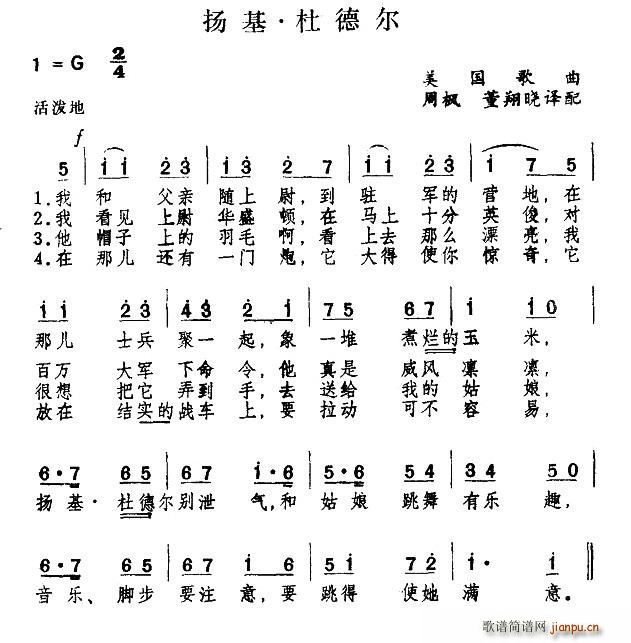 扬基·杜德尔
1=G 2/4
美国歌曲
活泼地
周枫 董翔晓译配
f
5 | i i 2̇ 3̇ | i 3̇ 2̇ 7 | i i 2̇ 3̇ | i 7 5 |
1.我 和 父亲 随上 尉,到 驻 军的 营 地,在
2.我 看见 上尉 华盛 顿,在 马上 十分 英 俊,对
3.他 帽子 上的 羽毛 啊,看 上去 那么 漂 亮,我
4.在 那儿 还有 一门 炮,它 大得 使你 惊 奇,它
i i 2̇ 3̇ | 4̇ 3̇ 2̇ i | 7 5 6 7 | i i 0 |
那儿 士兵 聚一 起,象 一堆 煮烂的玉 米,
百万 大军 下命 令,他 真是 威风 凛 凛,
很想 把它 弄到 手,去 送给 我的 姑 娘,
放在 结实的战车 上,要 拉动 可不 容 易,
6·7 6 5 | 6 7 i·6 | 5·6 5 4 | 3 4 5 0 |
扬 基·杜德尔别泄 气,和 姑娘 跳舞 有乐 趣,
6·7 6 5 | 6 7 i 6 | 5 i 7 2̇ | i· i ‖
音乐、脚步 要注 意,要 跳得 使她 满 意.
歌谱简谱网
jianpu.cn